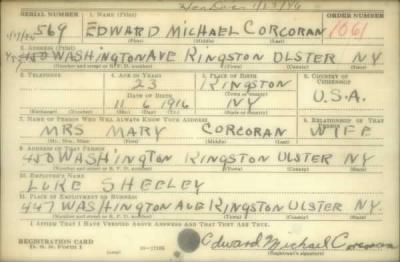 SERIAL NUMBER 1. NAME (Print) ORDER NUMBER
569 EDWARD MICHAEL CORCORAN 1061
(First) (Middle) (Last)
2. ADDRESS (Print)
450 WASHINGTON AVE KINGSTON ULSTER NY
(Number and street or R. F. D. number) (Town) (County) (State)
3. TELEPHONE 4. AGE IN YEARS 5. PLACE OF BIRTH 6. COUNTRY OF CITIZENSHIP
23 KINGSTON
DATE OF BIRTH U.S.A.
11 6 1916 NY
(Mo.) (Day) (Yr.) (State or country)
7. NAME OF PERSON WHO WILL ALWAYS KNOW YOUR ADDRESS 8. RELATIONSHIP OF THAT PERSON
MRS MARY CORCORAN WIFE
(Mr., Mrs., Miss) (First) (Middle) (Last)
9. ADDRESS OF THAT PERSON
450 WASHINGTON KINGSTON ULSTER NY
(Number and street or R. F. D. number) (Town) (County) (State)
10. EMPLOYER'S NAME
LUKE SHEELEY
11. PLACE OF EMPLOYMENT OR BUSINESS
447 WASHINGTON AVE KINGSTON ULSTER NY.
(Number and street or R. F. D. number) (Town) (County) (State)
I AFFIRM THAT I HAVE VERIFIED ABOVE ANSWERS AND THAT THEY ARE TRUE.
REGISTRATION CARD
D. S. S. Form 1 Edward Michael Corcoran
(Registrant's signature)